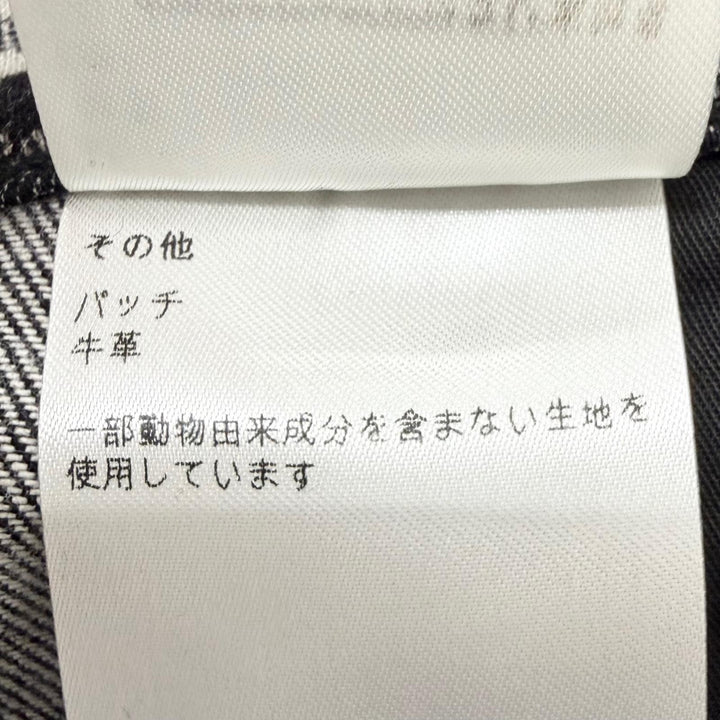 その他
パッチ
牛革
一部動物由来成分を含まない生地を
使用しています